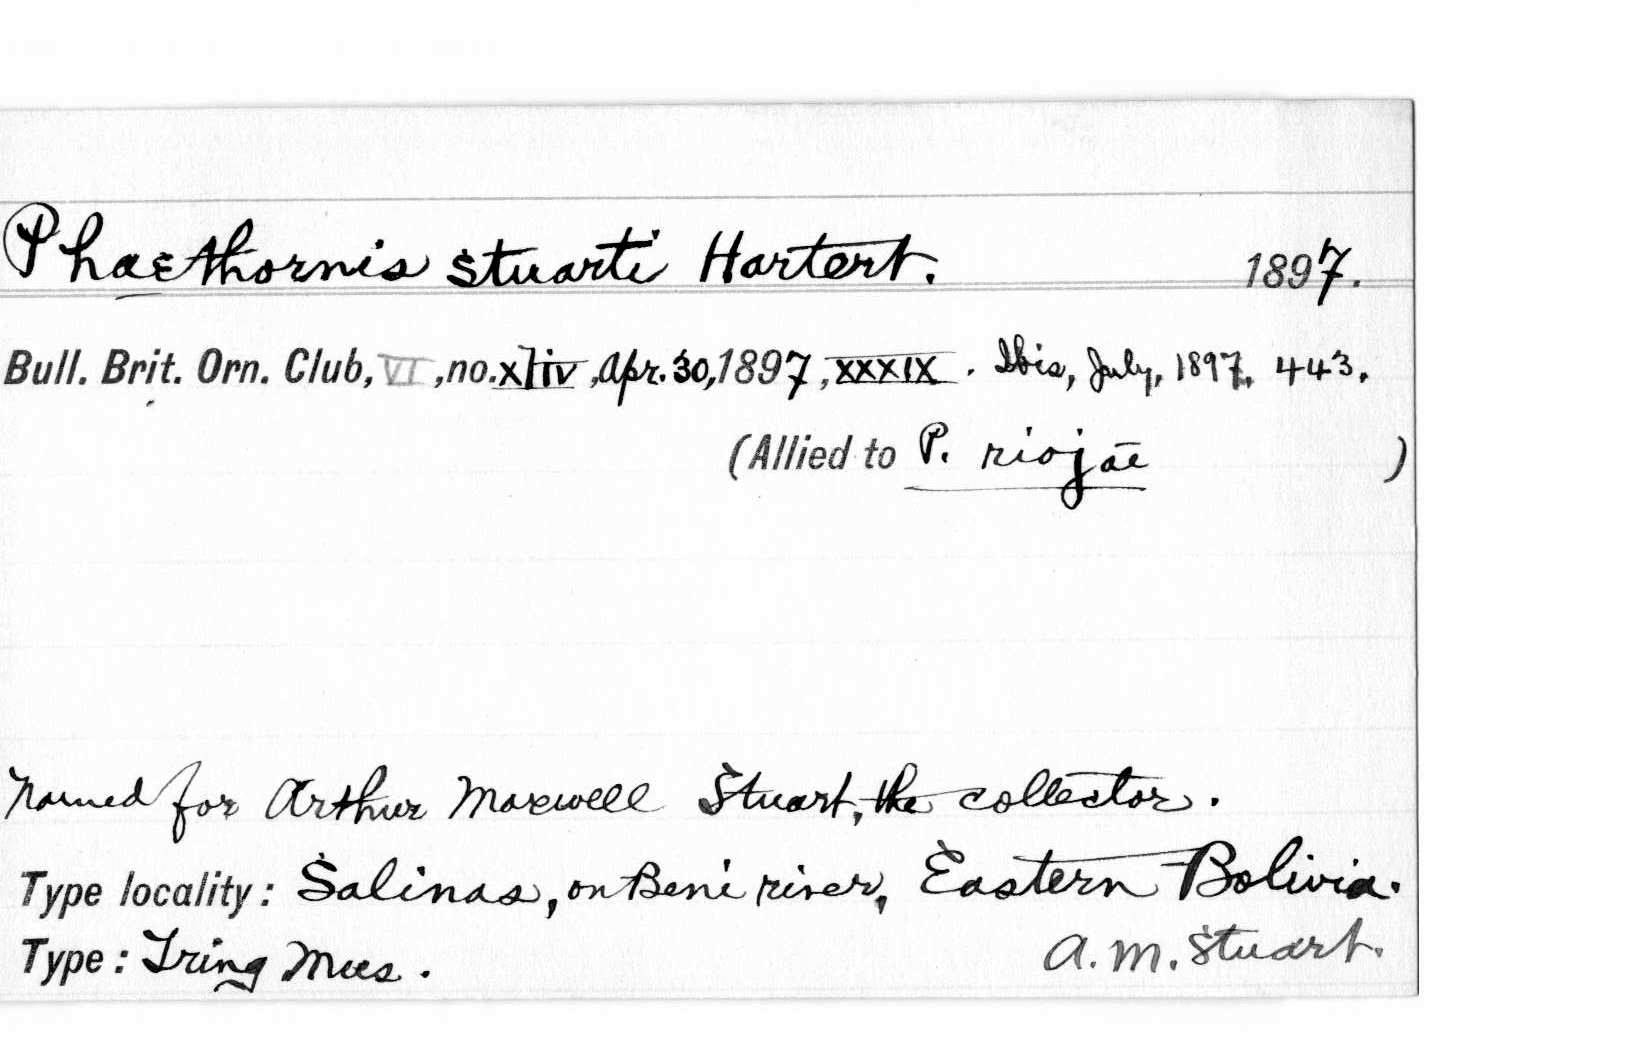 Phaethornis stuarti Hartert. 1897.
Bull. Brit. Orn. Club, VI, no. xliv, Apr. 30, 1897, XXXIX. Ibis, July, 1897, 443.
(Allied to P. riojae )
Named for Arthur Maxwell Stuart, the collector.
Type locality: Salinas, on Beni river, Eastern Bolivia.
Type: Tring Mus. A. M. Stuart.